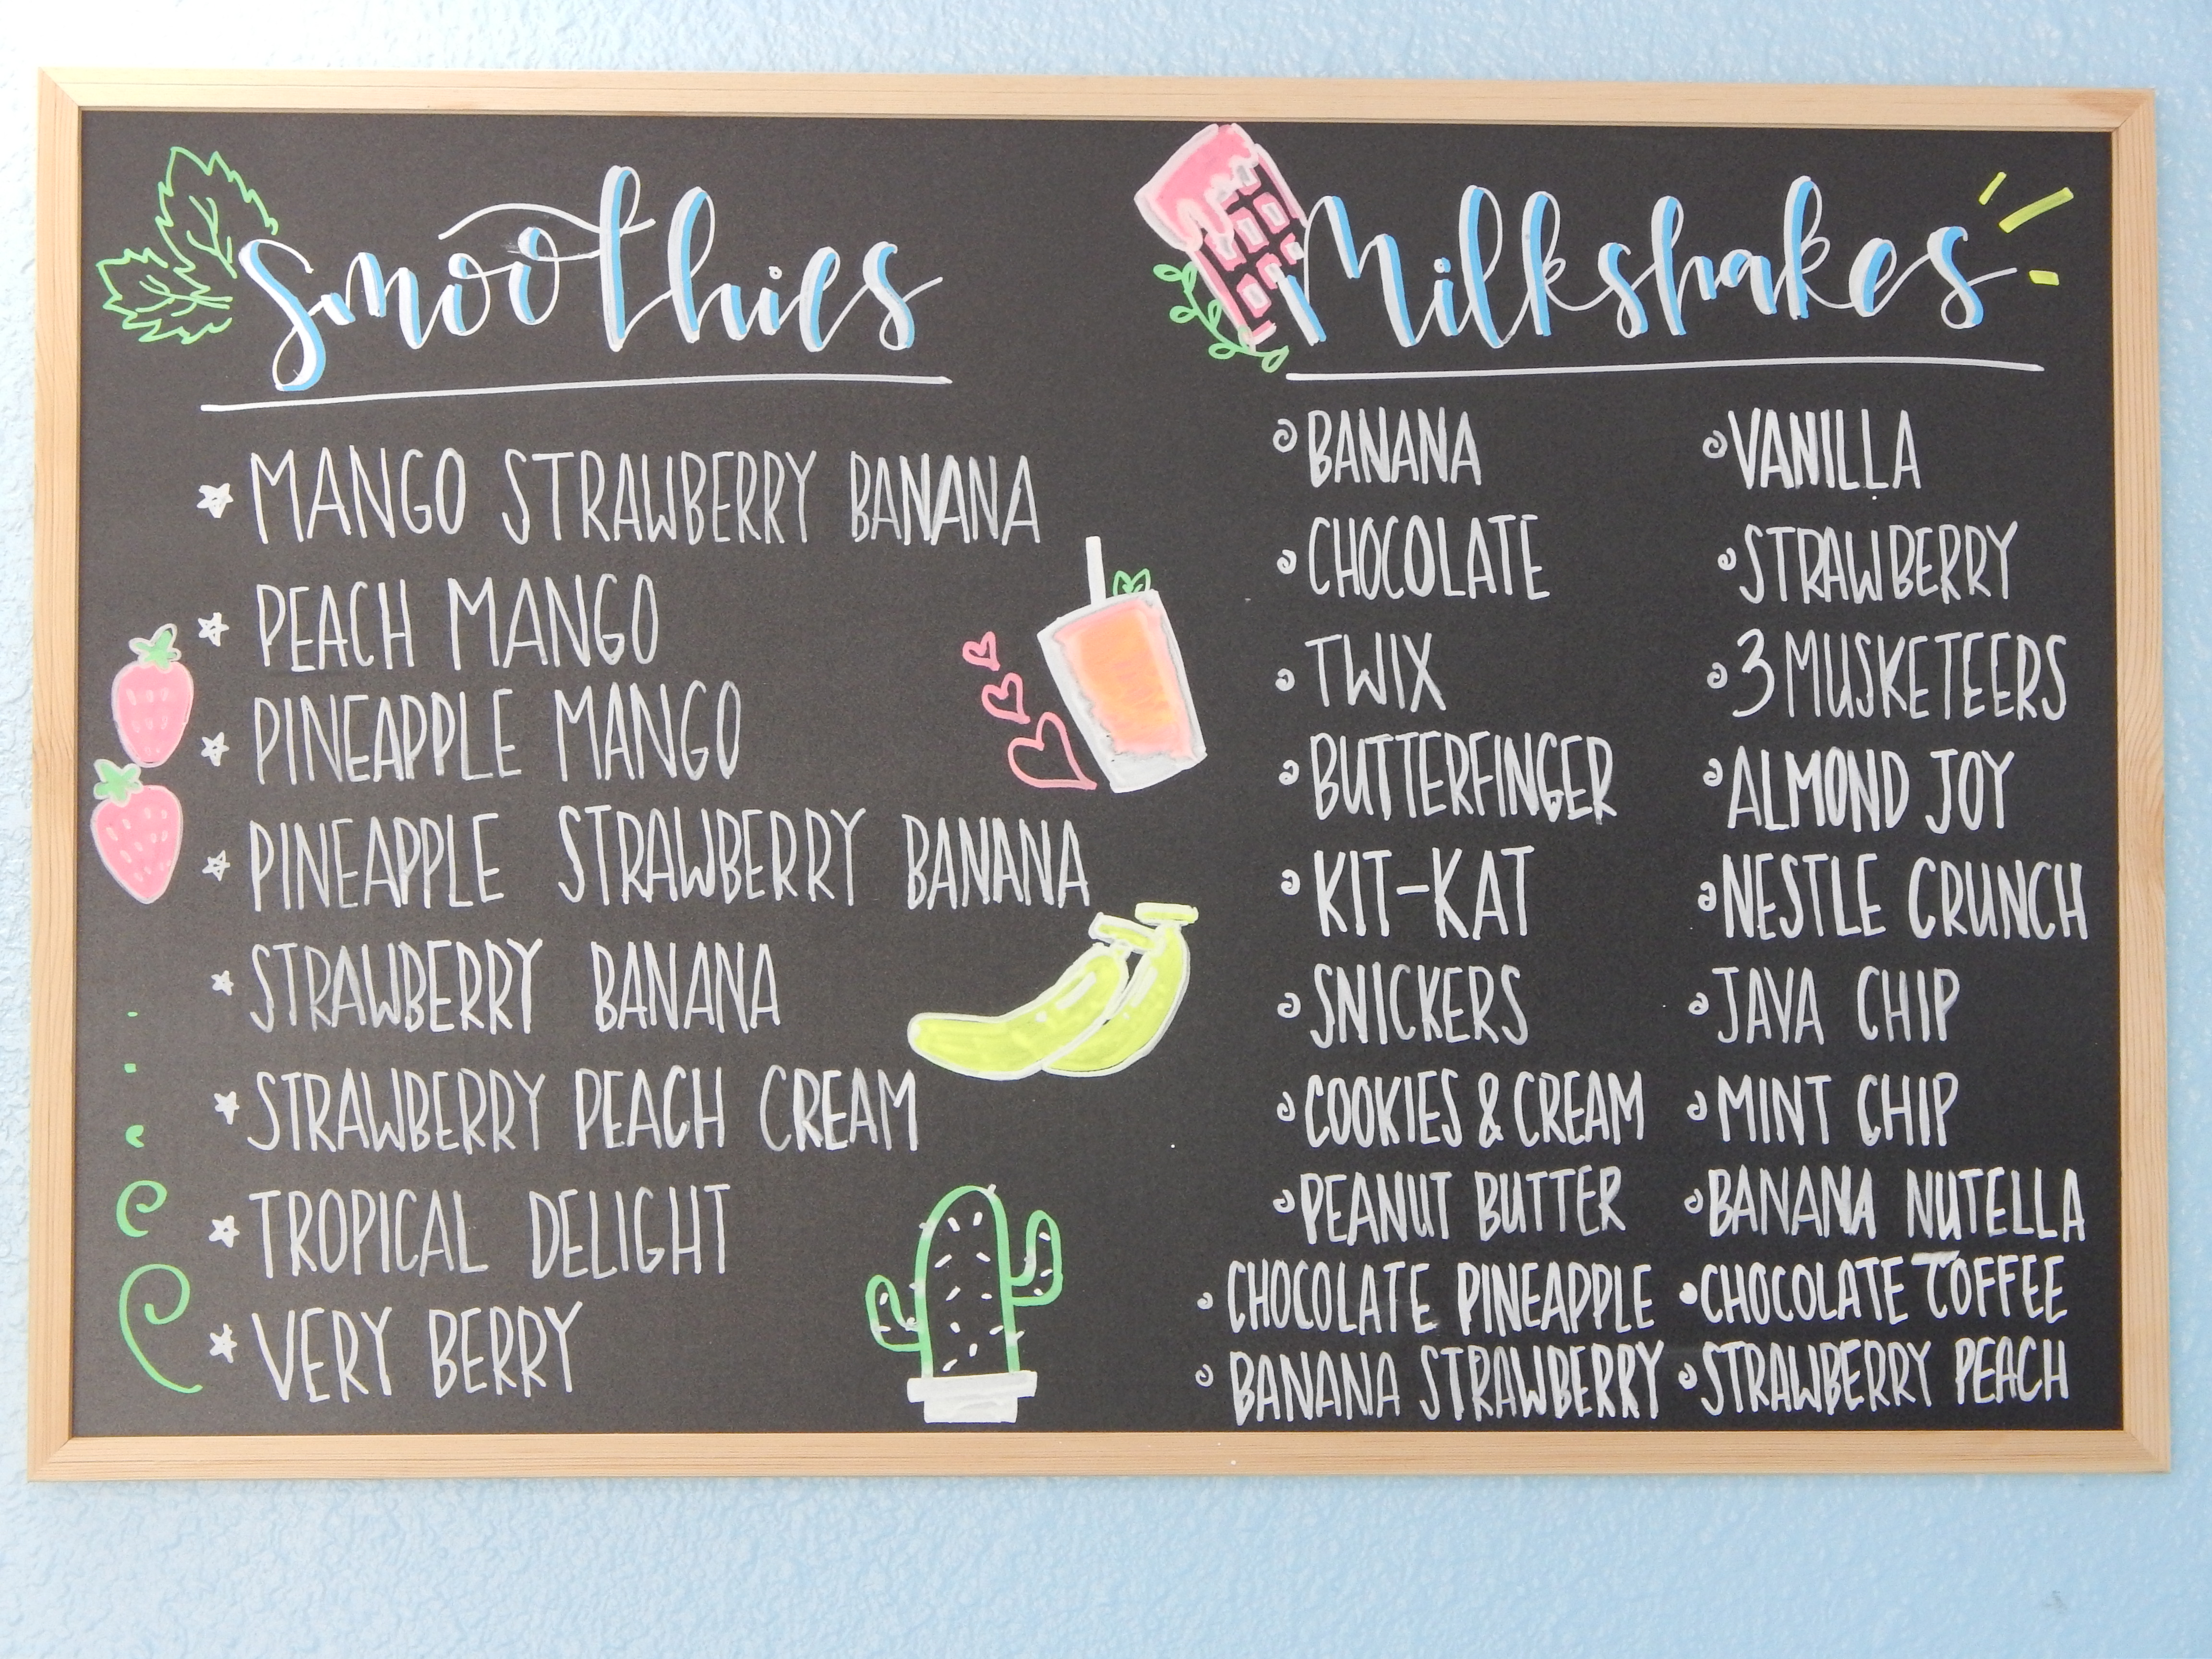 Smoothies
MANGO STRAWBERRY BANANA
PEACH MANGO
PINEAPPLE MANGO
PINEAPPLE STRAWBERRY BANANA
STRAWBERRY BANANA
STRAWBERRY PEACH CREAM
TROPICAL DELIGHT
VERY BERRY
Milkshakes
BANANA
CHOCOLATE
TWIX
BUTTERFINGER
KIT-KAT
SNICKERS
COOKIES & CREAM
PEANUT BUTTER
CHOCOLATE PINEAPPLE
BANANA STRAWBERRY
VANILLA
STRAWBERRY
3 MUSKETEERS
ALMOND JOY
NESTLE CRUNCH
JAVA CHIP
MINT CHIP
BANANA NUTELLA
CHOCOLATE TOFFEE
STRAWBERRY PEACH